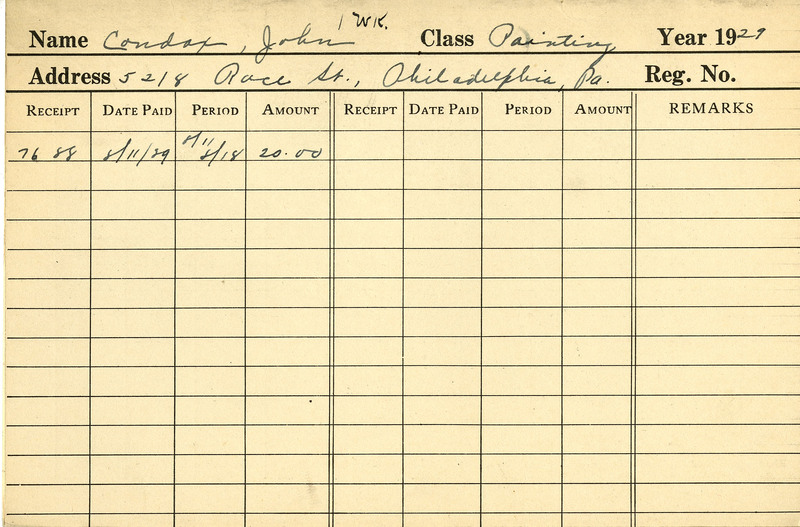 1 WK.
Name Condax, John Class Painting Year 1929
Address 5218 Race St., Philadelphia, Pa. Reg. No.
RECEIPT DATE PAID PERIOD AMOUNT RECEIPT DATE PAID PERIOD AMOUNT REMARKS
8/11
7688 8/11/29 8/18 20.00